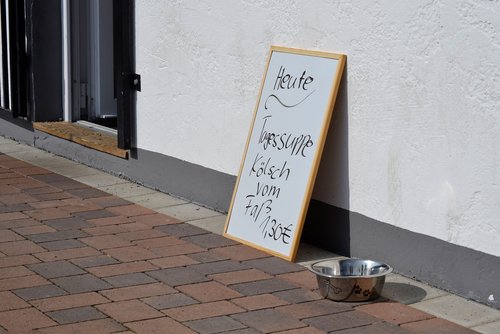 Heute
Tagessuppe
Kölsch
vom
Faß
1,30€